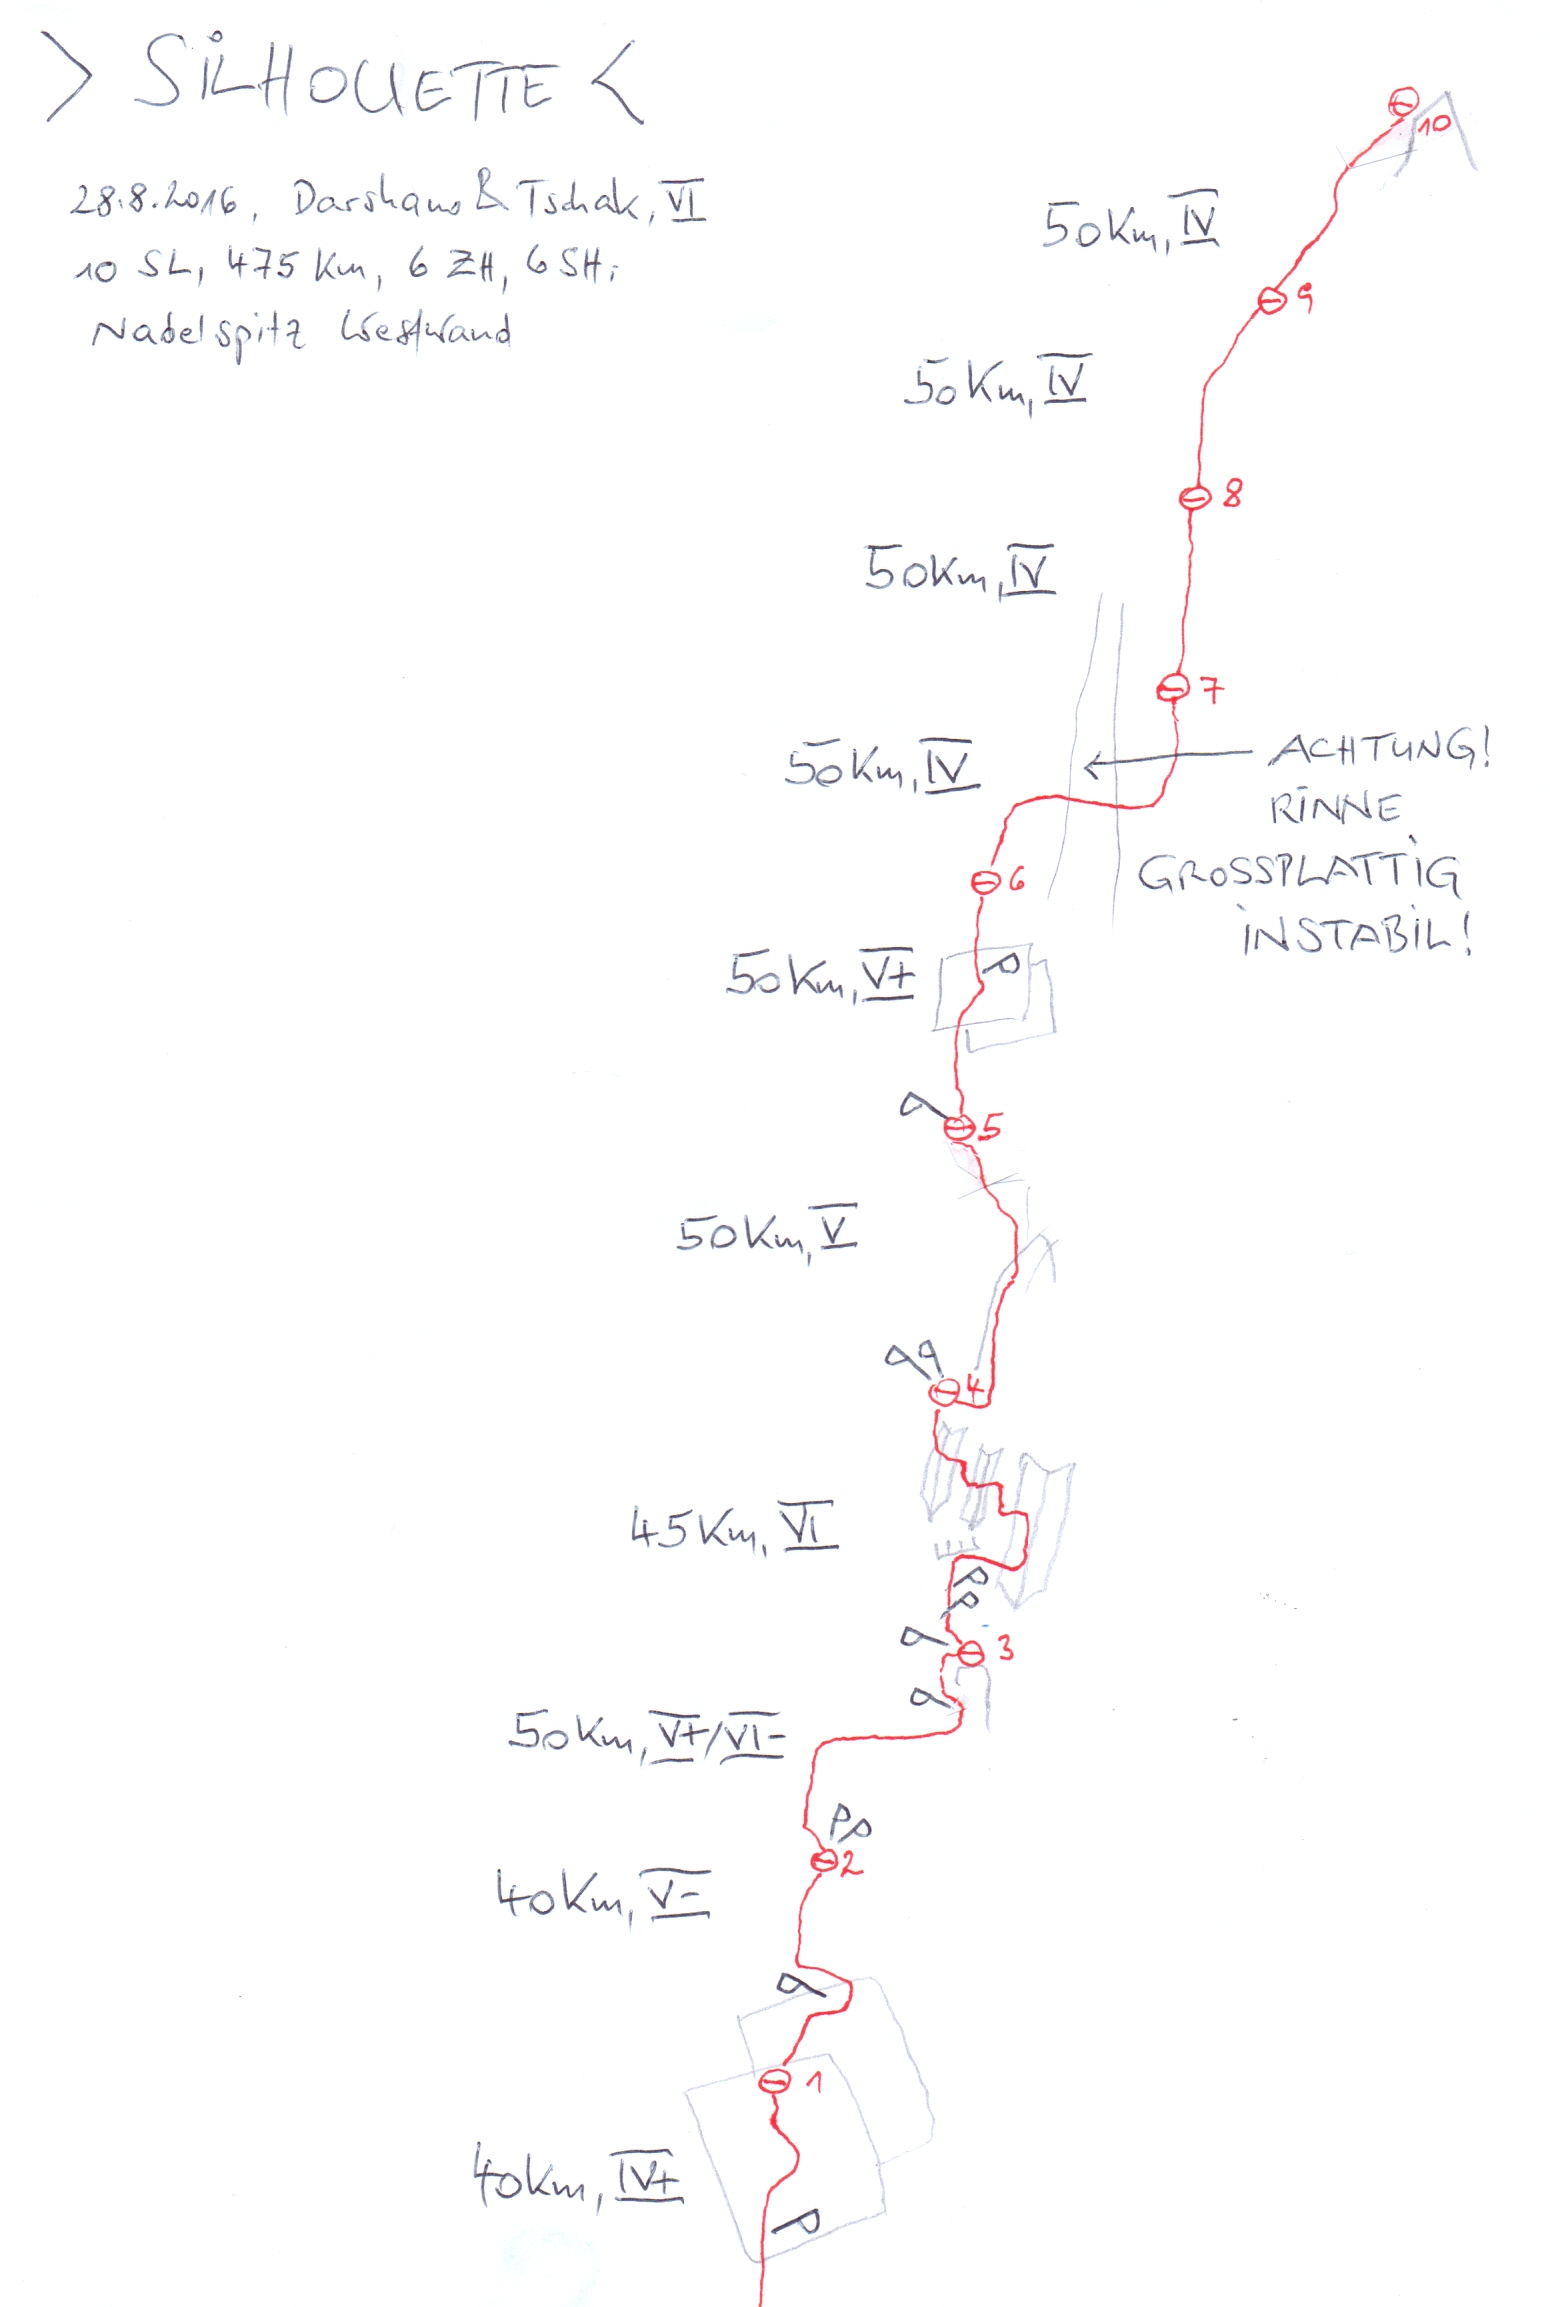 > SiLHOUETTE <
28.8.2016, Darshano & Tschak, VI
10 SL, 475 Km, 6 ZH, 6 SH;
Nadelspitz Westwand
10
50Km, IV
9
50Km, IV
8
50Km, IV
7
50Km, IV
ACHTUNG!
RiNNE
GROSSPLATTiG
iNSTABiL!
6
50Km, V+
5
50Km, V
4
45Km, VI
3
50Km, V+/VI-
2
40Km, V-
1
40Km, IV+